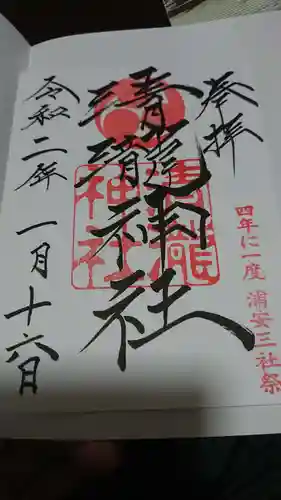 奉拝
清瀧神社
令和二年一月十六日
清瀧
神社
四年に一度 浦安三社祭